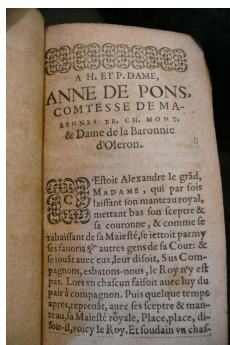 A H. ET P. DAME,
ANNE DE PONS.
COMTESSE DE MA-
RENNES BR. CH. MONT.
& Dame de la Baronnie
d'Oleron.
C'Estoit Alexandre le grãd,
MADAME, qui par fois
laissant son manteau royal,
mettant bas son sceptre &
sa couronne, & comme se
rabaissant de sa Maiesté, se iettoit parmy
ses fauoris & autres gens de sa Cour: &
se iouãt auec eux, leur disoit, Sus Com-
pagnons, esbatons-nous, le Roy n'y est
pas. Lors vn chascun faisoit auec luy du
pair à compagnon. Puis quelque temps
apres, reprenãt, auec ses sceptre & man-
teau, sa Maiesté royale, Place, place, di-
soit-il, voicy le Roy. Et soudain vn chas-